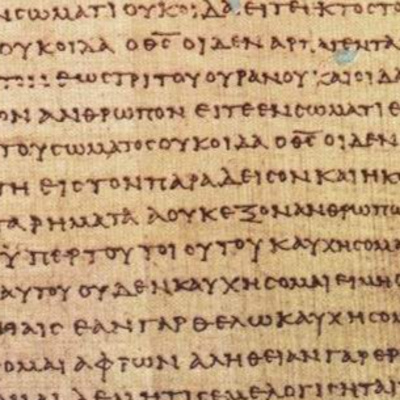 ΝϹΩΜΑΤΙ ΟΥΚΟΙΔΑ ΕΙΤΕ ΕΚΤΟϹΤΟ
ΟΥΚΟΙΔΑ Ο Θ̅Ϲ̅ ΟΙΔΕΝ ΑΡΠΑΓΕΝΤΑ
ΕΩϹΤΡΙΤΟΥΟΥΡΑΝΟΥ ΚΑΙΟΙΔΑ
ΟΝ ΑΝΘΡΩΠΟΝ ΕΙΤΕΕΝϹΩΜΑΤΙ Ε
ΤΟΥϹΩΜΑΤΟϹΟΥΚΟΙΔΑ Ο Θ̅Ϲ̅ ΟΙΔΕΝ
ΓΗ ΕΙϹΤΟΝΠΑΡΑΔΕΙϹΟΝΚΑΙΗΚ
ΤΑΡΗΜΑΤΑ ΑΟΥΚΕΞΟΝΑΝΘΡΩΠΩ
ΥΠΕΡΤΟΥΤΟΙΟΥΤΟΥ ΚΑΥΧΗϹΟΜΑ
ΑΥΤΟΥ ΟΥΔΕΝΚΑΥΧΗϹΟΜΑΙΕΙΜΗ
ΕΑΝΓΑΡΘΕΛΩΚΑΥΧΗϹΟΜ
ΟΜΑΙ ΑΦΡΩΝ ΑΛΗΘΕΙΑΝΓΑΡΕΡ
ΜΗΤΙϹΕΜΕΛΟΓΙϹΗΤΑΙ